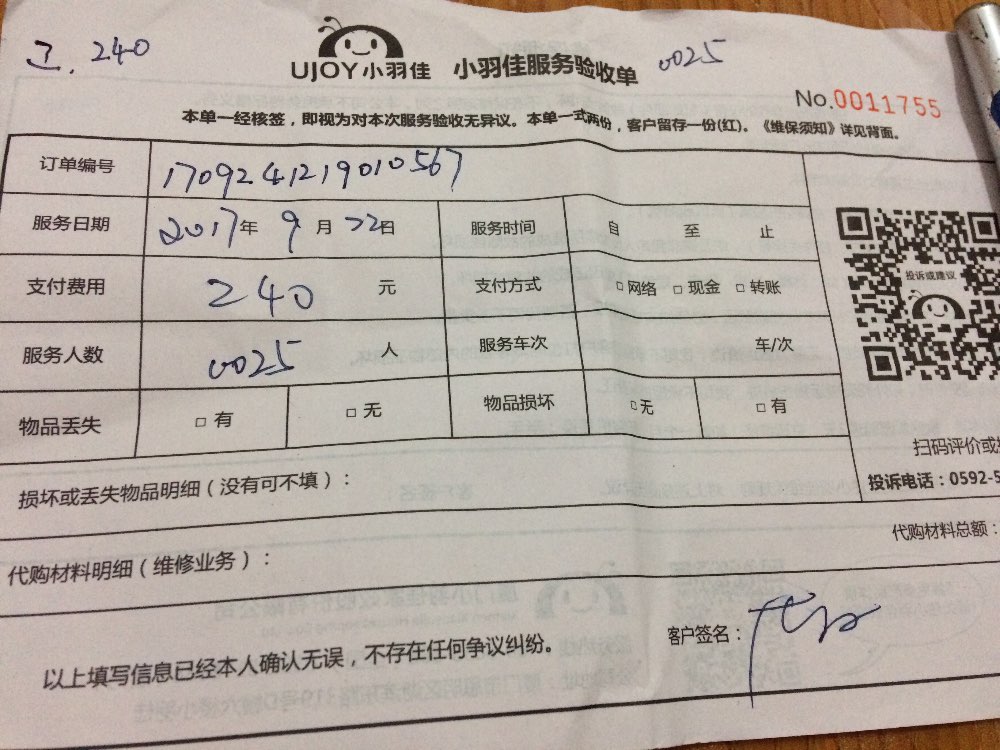 工.240
UJOY小羽佳 小羽佳服务验收单 0025
No.0011755
本单一经核签，即视为对本次服务验收无异议。本单一式两份，客户留存一份(红)。《维保须知》详见背面。
订单编号 1709241219010567
服务日期 2017年 9月 22日 服务时间 自 至 止
支付费用 240 元 支付方式 □网络 □现金 □转账
投诉或建议
服务人数 0025 人 服务车次 车/次
物品丢失 □有 □无 物品损坏 □无 □有
扫码评价或
损坏或丢失物品明细（没有可不填）：
投诉电话：0592-5
代购材料总额：
代购材料明细（维修业务）：
客户签名：
以上填写信息已经本人确认无误，不存在任何争议纠纷。